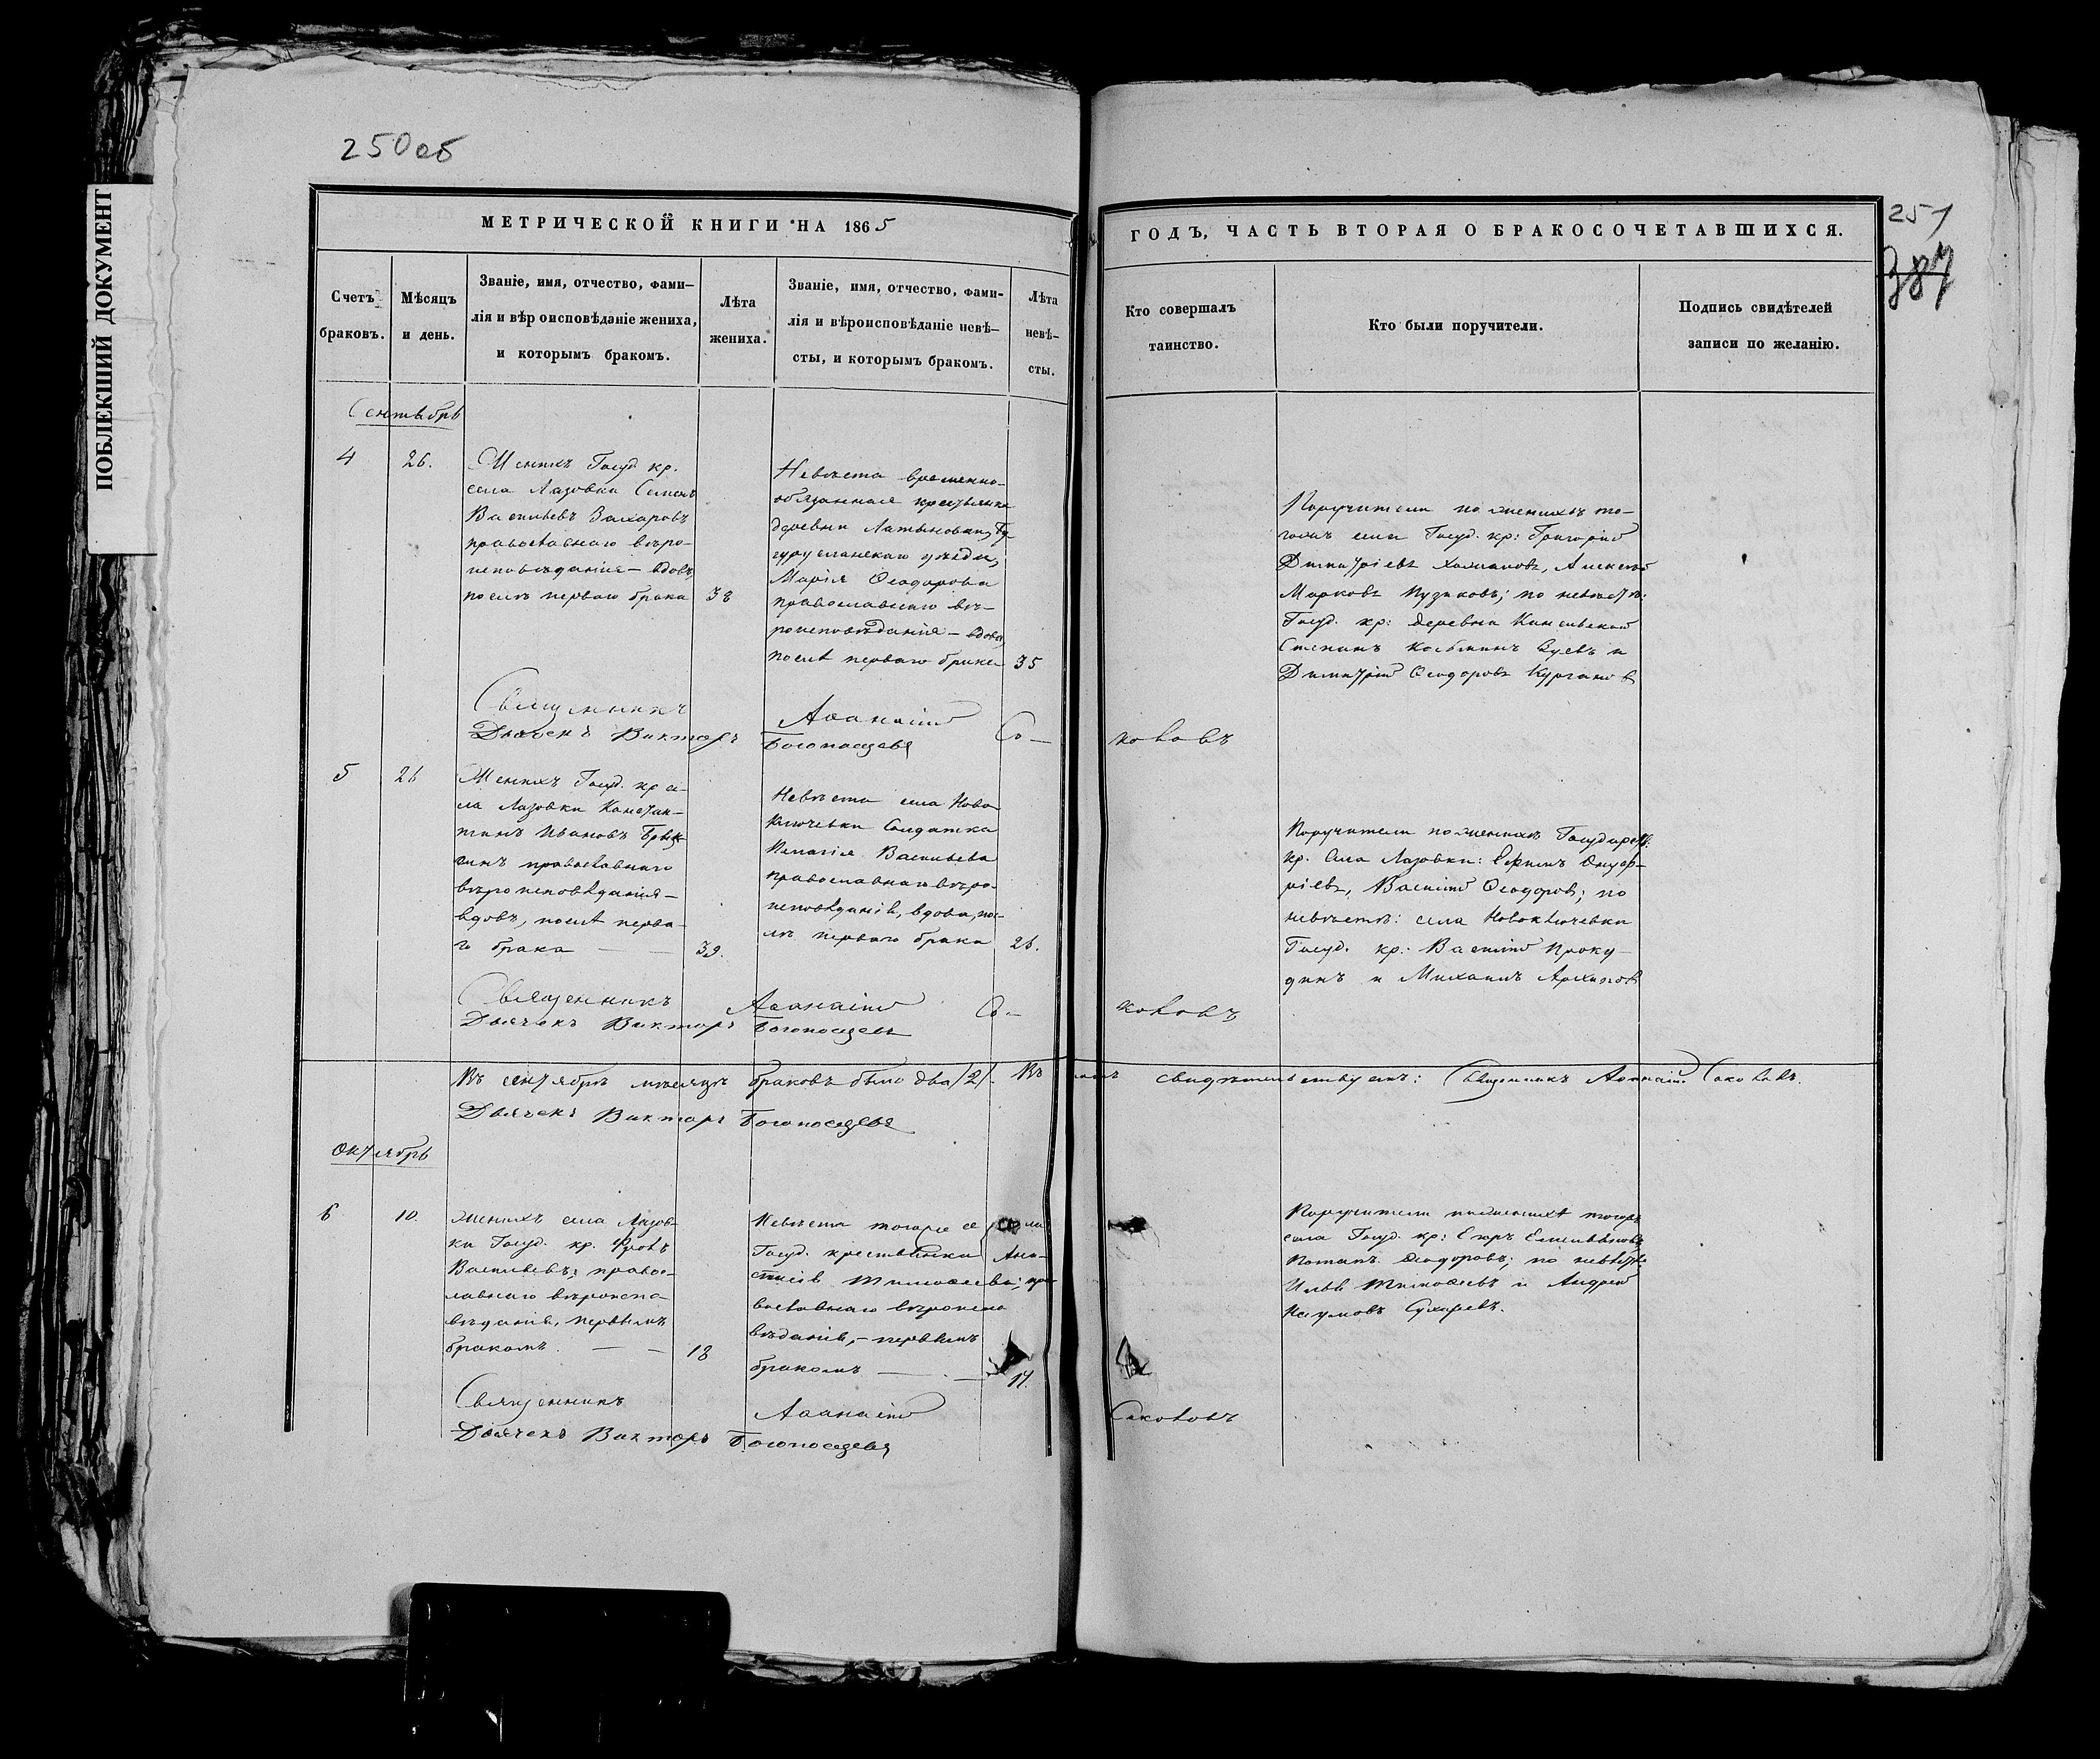 250об
ПОБЛЕКШИЙ ДОКУМЕНТ
МЕТРИЧЕСКОЙ КНИГИ НА 1865
ГОДЪ, ЧАСТЬ ВТОРАЯ О БРАКОСОЧЕТАВШИХСЯ.
251
387
Счетъ
браковъ.
Мѣсяцъ
и день.
Званіе, имя, отчество, фами-
лія и вѣроисповѣданіе жениха,
и которымъ бракомъ.
Лѣта
жениха.
Званіе, имя, отчество, фами-
лія и вѣроисповѣданіе невѣ-
сты, и которымъ бракомъ.
Лѣта
невѣ-
сты.
Кто совершалъ
таинство.
Кто были поручители.
Подпись свидѣтелей
записи по желанію.
Сентябрь
4
26.
Женихъ Госуд. кр.
села Лазовки Семенъ
Васильевъ Захаровъ
православнаго вѣро-
исповѣданія — вдовъ,
послѣ перваго брака
38
Невѣста временно-
обязанная крестьянка
деревни Латыновки, Бу-
гурусланскаго уѣзда,
Марія Ѳеодорова
православнаго вѣ-
роисповѣданія — вдова,
послѣ перваго брака
35
Поручители по женихѣ то-
гожъ села Госуд. кр: Григорій
Димитріевъ Алексѣй
Марковъ Пузиковъ; по невѣстѣ:
Госуд. кр: деревни
Степанъ Козьминъ и
Димитрій Ѳеодоровъ Кургановъ
Священникъ Аѳанасій Со-
коловъ
Дьячекъ Викторъ
5
26
Женихъ Госуд. кр се-
ла Лазовки Констан-
тинъ Ивановъ
православнаго
вѣроисповѣданія —
вдовъ, послѣ перва-
го брака —
39.
Невѣста села Ново
Ключевки Солдатка
Пелагія Васильева
православнаго вѣро-
исповѣданія, вдова, пос-
лѣ перваго брака
26.
Поручители по женихѣ Государств.
кр. села Лазовки: Ефимъ Онуф-
ріевъ, Василій Ѳеодоровъ; по
невѣстѣ: села Новоключевки
Госуд. кр: Василій Проку-
динъ и Михаилъ Архиповъ
Священникъ Аѳанасій Со-
коловъ
Дьячекъ Викторъ
Въ сентябрѣ мѣсяцѣ браковъ было два /2/. Въ чемъ свидѣтельствуемъ: Священникъ Аѳанасій Соколовъ.
Дьячекъ Викторъ
Октябрь
6
10.
Женихъ села Лазов-
ки Госуд. кр. Фролъ
Васильевъ; правос-
лавнаго вѣроиспо-
вѣданія, первымъ
бракомъ. — —
18
Невѣста тогоже села
Госуд. крестьянка Ана-
стасія Тимоѳеева; пра-
вославнаго вѣроиспо
вѣданія, — первымъ
бракомъ —
17.
Поручители по женихѣ тогожъ
села Госуд. кр: Егоръ Емельяновъ,
Потапъ Ѳеодоровъ; по невѣстѣ
Илья Тимоѳеевъ и Андрей
Наумовъ Сухаревъ.
Священникъ Аѳанасій
Соколовъ
Дьячекъ Викторъ